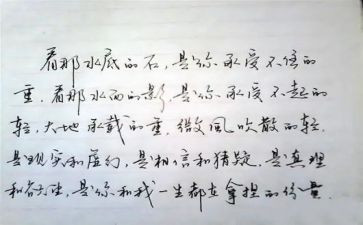 看那水底的石,是你承受不住的
重,看那水面的影,是你承受不起的
轻,大地承载的重,微风吹散的轻.
是现实和虚幻,是相信和猜疑,是真理
和谷生,是你和我一生都在拿捏的份量.